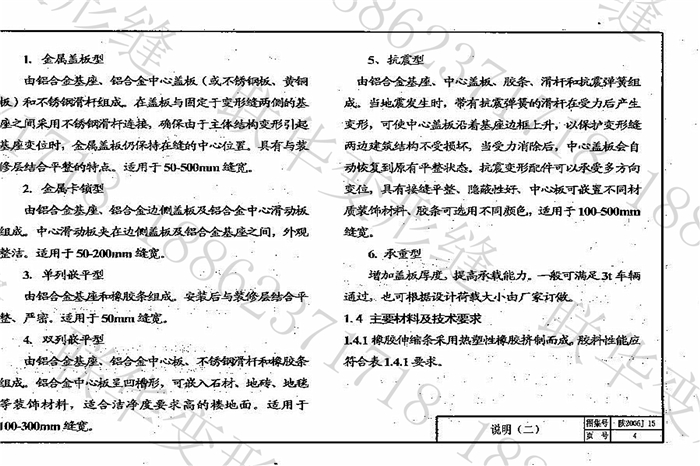 1. 金属盖板型
由铝合金基座、铝合金中心盖板（或不锈钢板、黄铜
板）和不锈钢滑杆组成。在盖板与固定于变形缝两侧的基
座之间采用不锈钢滑杆连接，确保由于主体结构变形引起
基座变位时，金属盖板仍保持在缝的中心位置。具有与装
修层结合平整的特点。适用于50-500mm缝宽。
2. 金属卡锁型
由铝合金基座、铝合金边侧盖板及铝合金中心滑动板
组成。中心滑动板夹在边侧盖板及铝合金基座之间，外观
整洁。适用于50-200mm缝宽。
3. 单列嵌平型
由铝合金基座和橡胶条组成。安装后与装修层结合平
整、严密。适用于50mm缝宽。
4. 双列嵌平型
由铝合金基座、铝合金中心板、不锈钢滑杆和橡胶条
组成。铝合金中心板呈凹槽形，可嵌入石材、地砖、地毯
等装饰材料，适合洁净度要求高的楼地面。适用于
100-300mm缝宽。
5、抗震型
由铝合金基座、中心盖板、胶条、滑杆和抗震弹簧组
成。当地震发生时，带有抗震弹簧的滑杆在受力后产生
变形，可使中心盖板沿着基座边框上升，以保护变形缝
两边建筑结构不受损坏，当受力消除后，中心盖板会自
动恢复到原有平整状态。抗震变形配件可以承受多方向
变位，具有接缝平整、隐蔽性好、中心板可嵌置不同材
质装饰材料、胶条可选用不同颜色，适用于100-500mm
缝宽。
6. 承重型
增加盖板厚度，提高承载能力。一般可满足3t车辆
通过，也可根据设计荷载大小由厂家订做。
1.4 主要材料及技术要求
1.4.1橡胶伸缩条采用热塑性橡胶挤制而成，胶料性能应
符合表1.4.1要求。
说明（二）
图集号 陕2006J 15
页号 4
联华变形缝 18862371718